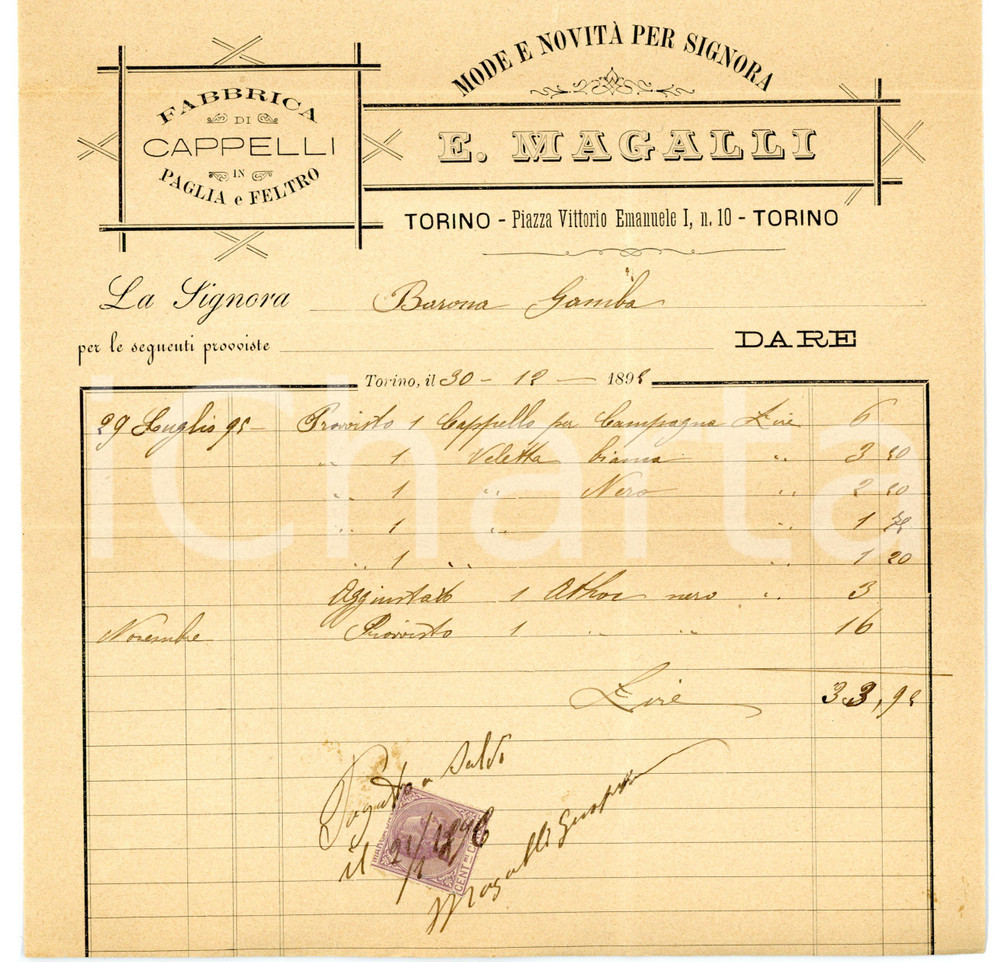 MODE E NOVITÀ PER SIGNORA
FABBRICA
DI
CAPPELLI
IN
PAGLIA e FELTRO
E. MAGALLI
TORINO - Piazza Vittorio Emanuele I, n. 10 - TORINO
La Signora Barona Gamba
per le seguenti provviste DARE
Torino, il 30 - 12 - 1895
29 Luglio 95 - Provvisto 1 Cappello per Campagna Lire 6
" 1 Veletta bianca " 3 20
" 1 " Nero " 2 20
" 1 " " 1
" 1 " " 1 20
Aggiustato 1 nero " 3
Novembre Provvisto 1 " " 16
Lire 33,95
Pagato a Saldo
il 21/1 1896
Magalli
CENT. MI
iCharta